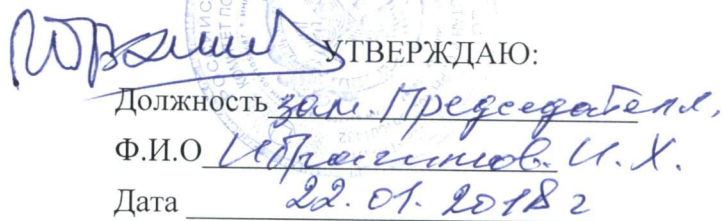 УТВЕРЖДАЮ:
Должность зам. Председателя,
Ф.И.О Ибрагимов. И. Х.
Дата 22.01.2018 г